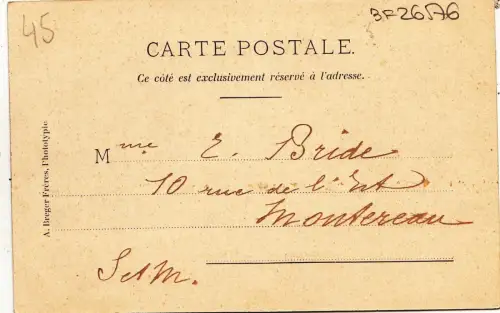 45
BF26A6
CARTE POSTALE.
Ce côté est exclusivement réservé à l'adresse.
Mme E. Bride
10 rue de l'Est
Montereau
S et M.
A. Breger Frères, Phototypie